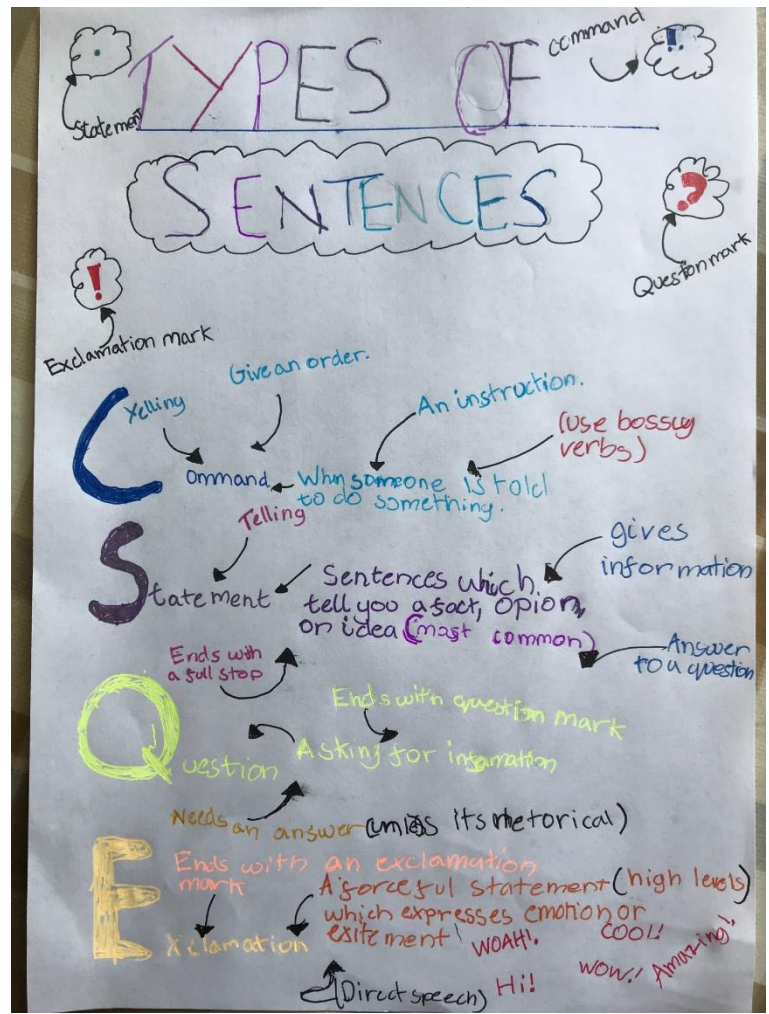 TYPES OF
command
!.
.
Statement
SENTENCES
?
Question mark
!
Exclamation mark
C
Yelling
Give an order.
An instruction.
(use bossy
verbs)
ommand
When someone is told
to do something.
Telling
S
tatement
Sentences which
tell you a fact, opion,
or idea (most common)
gives
information
Ends with
a full stop
Answer
to a question
Q
uestion
Ends with question mark
Asking for infamation
Needs an answer (unless its rhetorical)
E
xclamation
Ends with an exclamation
mark
A forceful statement (high levels)
which expresses emotion or
exitement!
WOAH!.
COOL!
WOW!!
Amazing!
(Direct speech)
Hi!